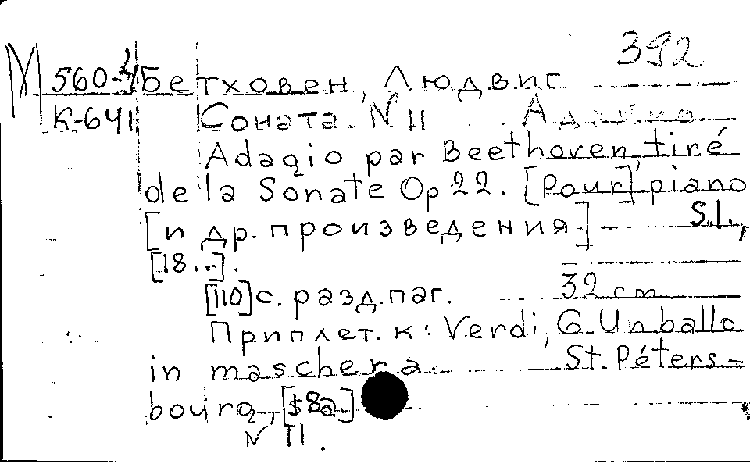 392
М 560-2/ Бетховен, Людвиг
К-641 Соната. N 11 Адажио
Adagio par Beethoven, tiré
de la Sonate Op 22. [Pour] piano
[и др. произведения] S.l.,
[18...].
[110] с. разд. паг. 32 cm
Приплет. к: Verdi, G. Un ballo
in maschera. St. Péters-
bourg,
N 11.